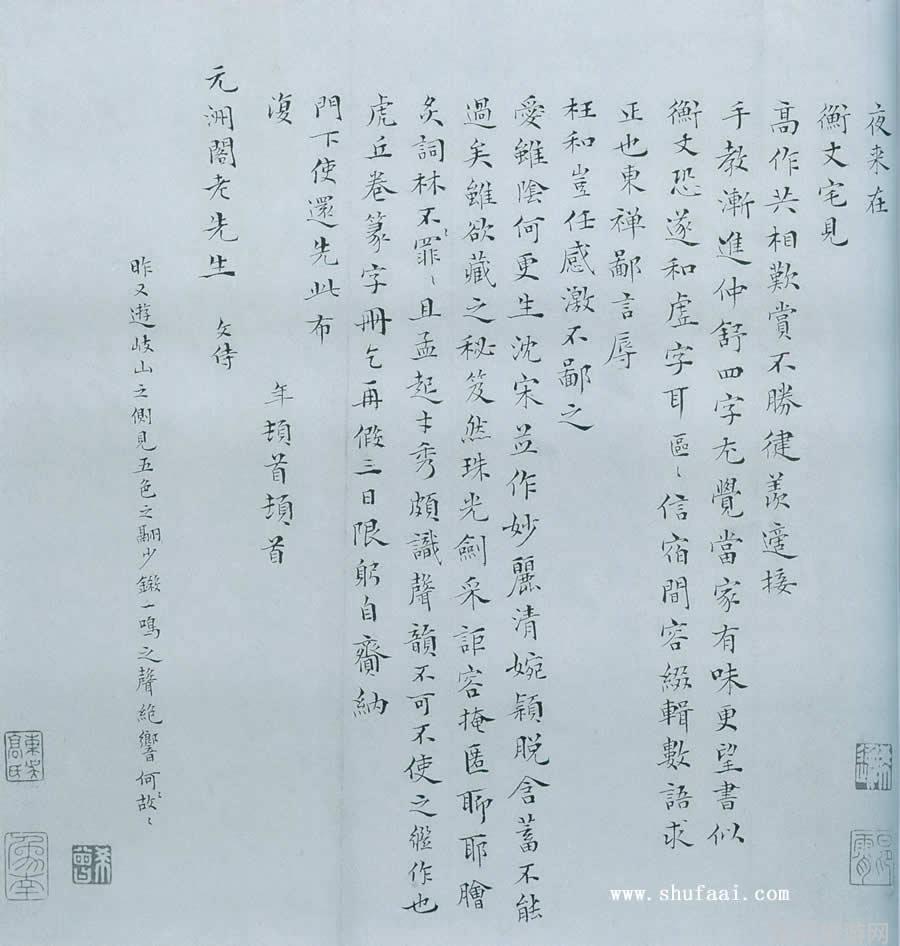 夜来在
衡丈宅見
高作共相歎賞不勝健羨適接
手教漸進仲舒四字尤覺當家有味更望書似
衡丈恐遂和虛字耳區〻信宿間容綴輯數語求
正也東禅鄙言辱
枉和豈任感激不鄙之
愛雖陰何更生沈宋並作妙麗清婉穎脱含蓄不能
過矣雖欲藏之秘笈然珠光劍采詎容掩匿聊耶膾
炙詞林不罪〻且孟起才秀頗識聲韻不可不使之繼作也
虎丘卷篆字冊乞再假三日限躬自齎納
門下使還先此布
復
年頓首頓首
元洲閣老先生 文侍
昨又遊岐山之側見五色之翮少鎩一鳴之聲絶響何故〻
www.shufaai.com